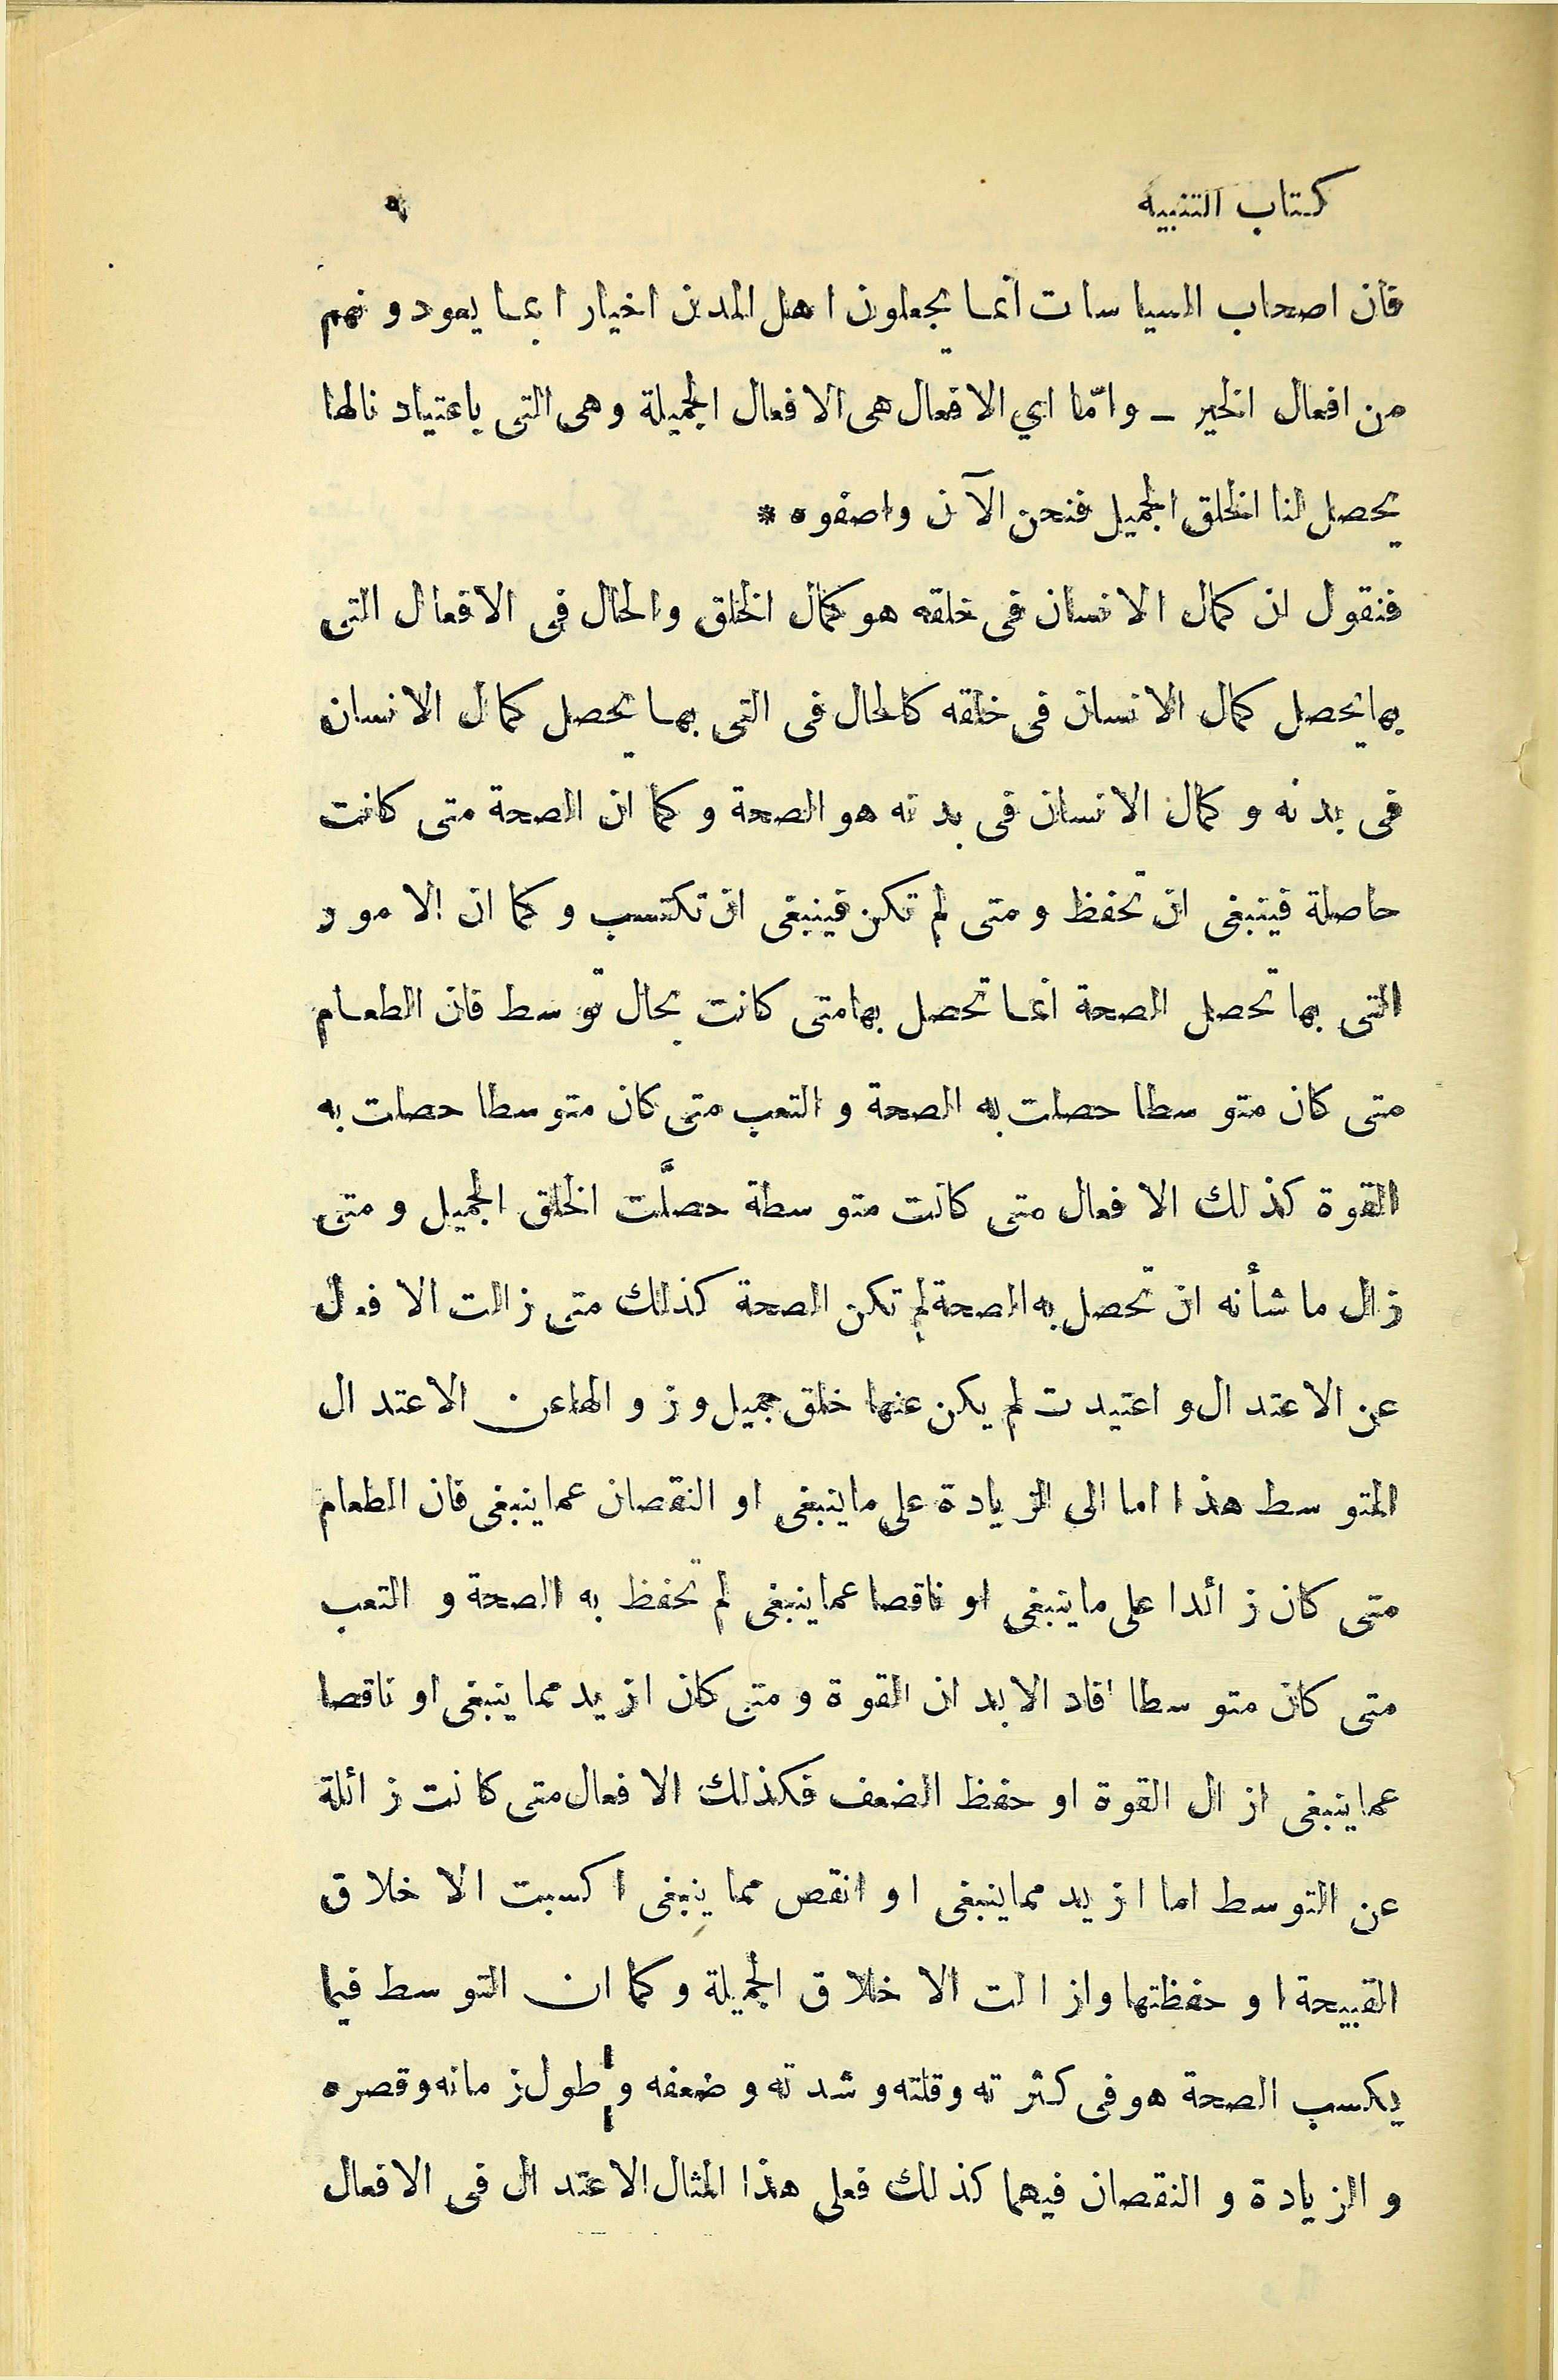 كتاب التنبيه ٩
فان اصحاب السياسات انما يجعلون اهل المدن اخيارا بما يعودونهم
من افعال الخير ــ وامّا اي الافعال هى الافعال الجميلة وهى التى باعتياد نالها
يحصل لنا الخلق الجميل فنحن الآن واصفوه *
فنقول ان كمال الانسان فى خلقه هو كمال الخلق والحال فى الافعال التى
بها يحصل كمال الانسان فى خلقه كالحال فى التى بها يحصل كمال الانسان
فى بدنه و كمال الانسان فى بدنه هو الصحة و كما ان الصحة متى كانت
حاصلة فينبغى ان تحفظ و متى لم تكن فينبغى ان تكتسب و كما ان الامور
التى بها تحصل الصحة انما تحصل بها متى كانت بحال توسط فان الطعام
متى كان متوسطا حصلت به الصحة و التعب متى كان متوسطا حصلت به
القوة كذلك الافعال متى كانت متوسطة حصلَّت الخلق الجميل و متى
زال ما شأنه ان تحصل به الصحة لم تكن الصحة كذلك متى زالت الافعال
عن الاعتدال و اعتيدت لم يكن عنها خلق جميل و زوالها عن الاعتدال
المتوسط هذا اما الى الزيادة على ما ينبغى او النقصان عما ينبغى فان الطعام
متى كان زائدا على ما ينبغى او ناقصا عما ينبغى لم تحفظ به الصحة و التعب
متى كان متوسطا افاد الابدان القوة و متى كان ازيد مما ينبغى او ناقصا
عما ينبغى ازال القوة او حفظ الضعف فكذلك الافعال متى كانت زائلة
عن التوسط اما ازيد مما ينبغى او انقص مما ينبغى اكسبت الاخلاق
القبيحة او حفظتها وازالت الاخلاق الجميلة و كما ان التوسط فيما
يكسب الصحة هو فى كثرته وقلته و شدته و ضعفه و طول زمانه وقصره
و الزيادة و النقصان فيهما كذلك فعلى هذا المثال الاعتدال فى الافعال